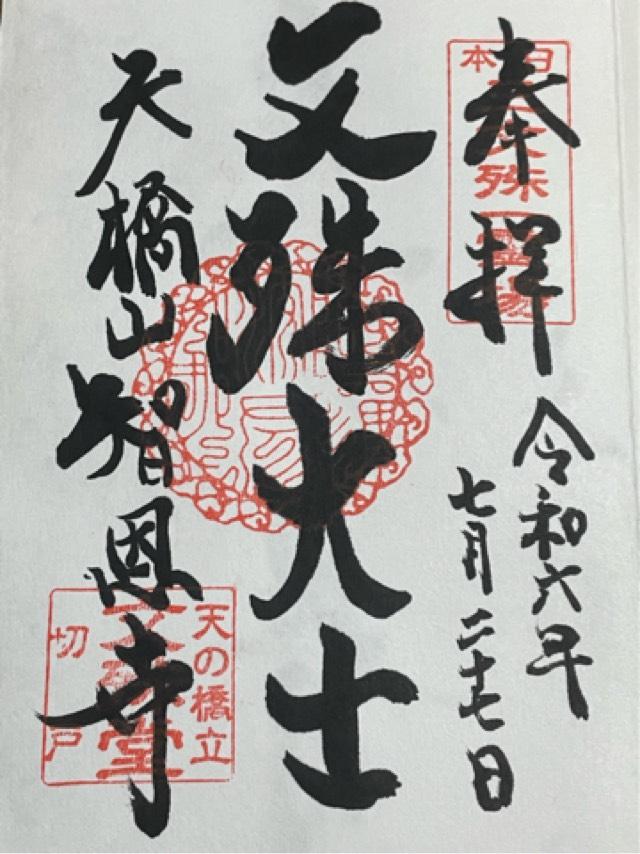 奉拝
令和六年
七月二十七日
日本三文殊
霊場
文殊大士
天橋山智恩寺
天の橋立
文殊堂
切戸